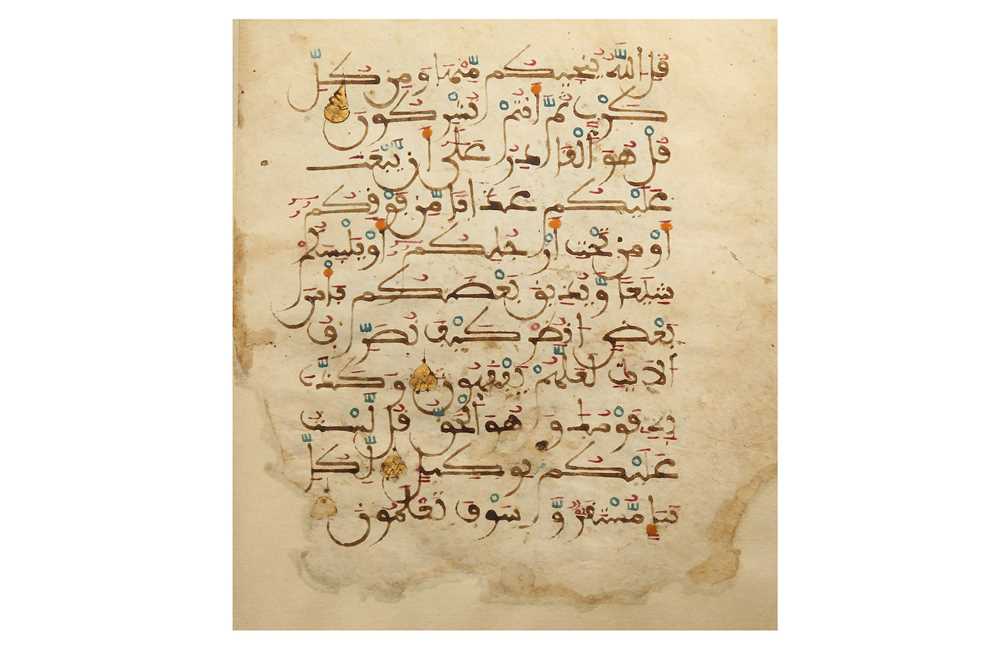 قُلِ اللَّهُ يُنَجِّيكُم مِّنْهَا وَمِن كُلِّ
كَرْبٍ ثُمَّ أَنتُمْ تُشْرِكُونَ
قُلْ هُوَ الْقَادِرُ عَلَىٰ أَن يَّبْعَثَ
عَلَيْكُمْ عَذَابًا مِّن فَوْقِكُمْ
أَوْ مِن تَحْتِ أَرْجُلِكُمْ أَوْ يَلْبِسَكُمْ
شِيَعًا وَيُذِيقَ بَعْضَكُم بَأْسَ
بَعْضٍ انظُرْ كَيْفَ نُصَرِّفُ
الْآيَاتِ لَعَلَّهُمْ يَفْقَهُونَ وَكَذَّبَ
بِهِ قَوْمُكَ وَهُوَ الْحَقُّ قُل لَّسْتُ
عَلَيْكُم بِوَكِيلٍ لِّكُلِّ
نَبَإٍ مُّسْتَقَرٌّ وَسَوْفَ تَعْلَمُونَ